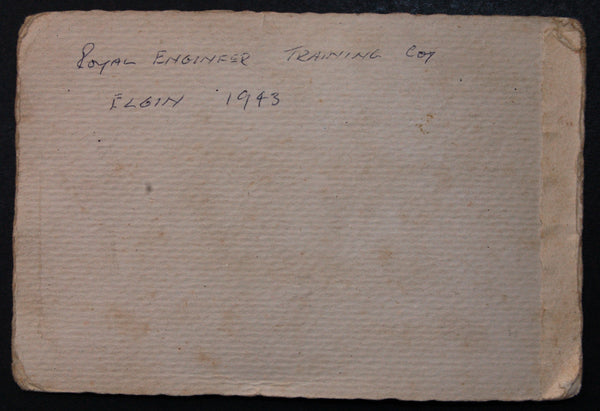 ROYAL ENGINEER TRAINING COY
ELGIN 1943